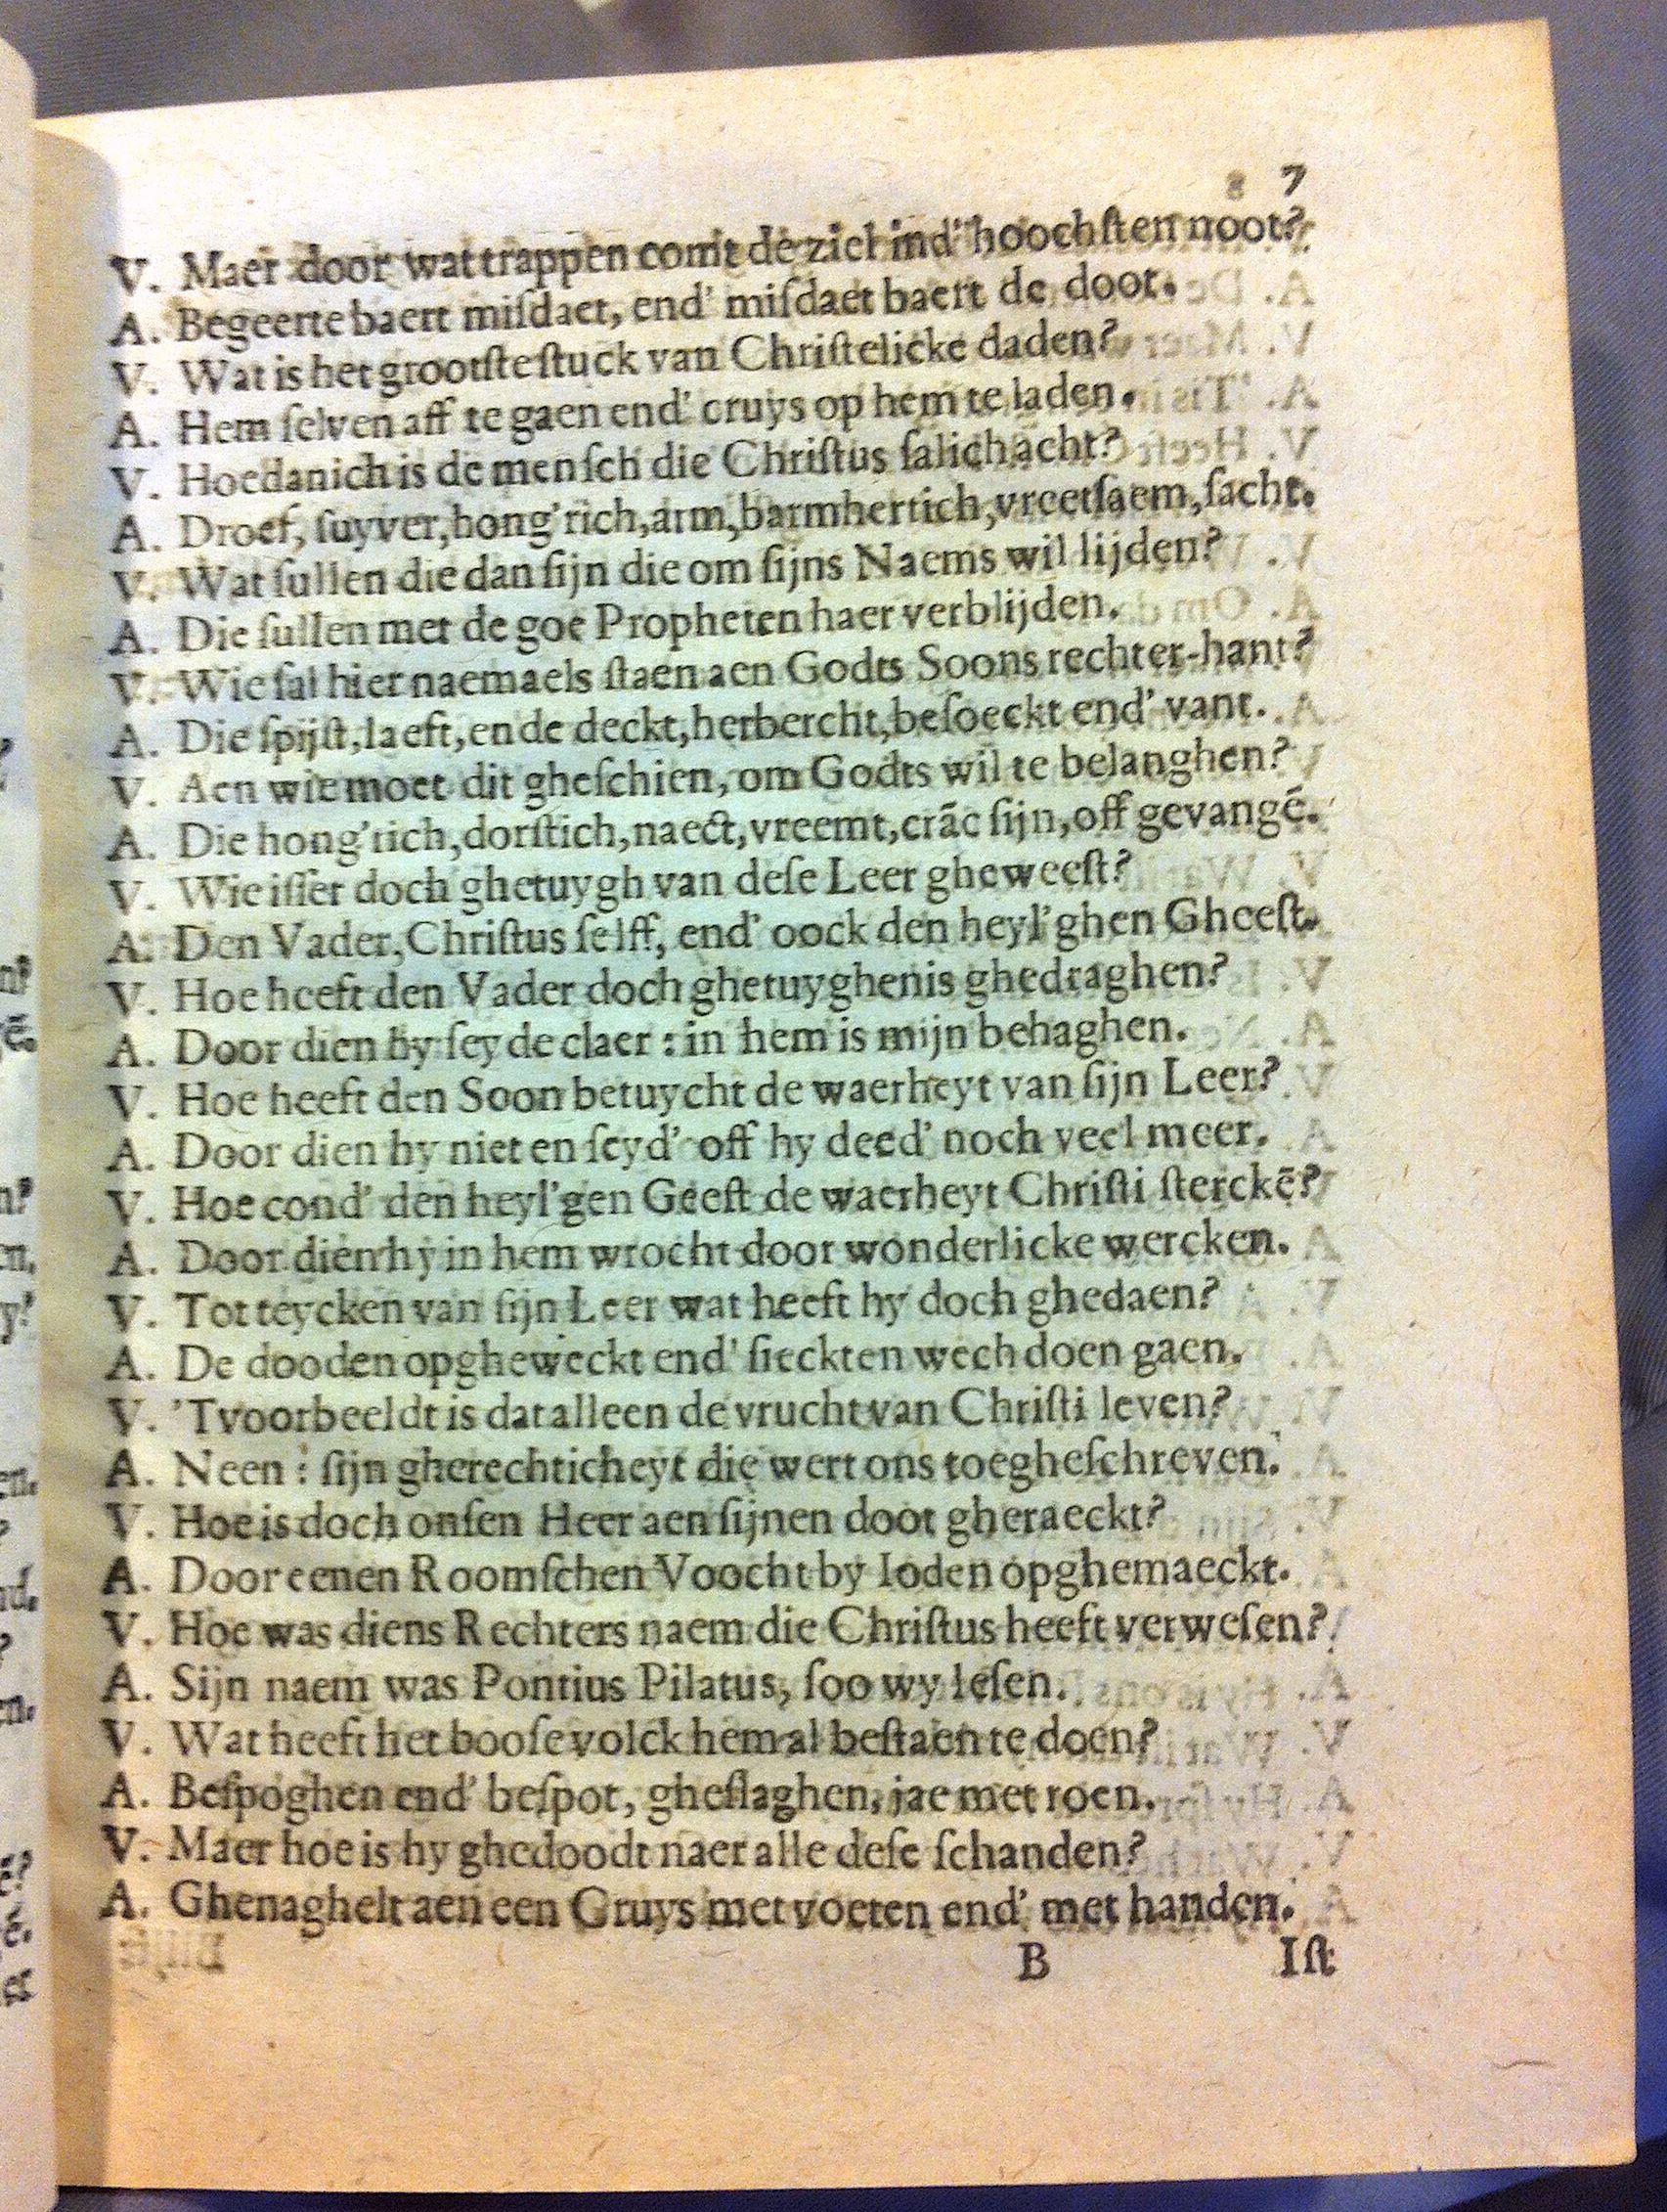 7
V. Maer door wat trappen comt de ziel ind' hoochſten noot?
A. Begeerte baert miſdaet, end' miſdaet baert de doot.
V. Wat is het grootſte ſtuck van Chriſtelicke daden?
A. Hem ſelven aff te gaen end' cruys op hem te laden.
V. Hoedanich is de menſch die Chriſtus ſalich acht?
A. Droef, ſuyver, hong'rich, arm, barmhertich, vreetſaem, ſacht.
V. Wat ſullen die dan ſijn die om ſijns Naems wil lijden?
A. Die ſullen met de goe Propheten haer verblijden.
V. Wie ſal hier naemaels ſtaen aen Godts Soons rechter-hant?
A. Die ſpijſt, laeft, ende deckt, herbercht, beſoeckt end' vant.
V. Aen wie moet dit gheſchien, om Godts wil te belanghen?
A. Die hong'rich, dorſtich, naect, vreemt, crãc ſijn, off gevangẽ.
V. Wie iſſer doch ghetuygh van deſe Leer gheweeſt?
A. Den Vader, Chriſtus ſelff, end' oock den heyl'ghen Gheeſt.
V. Hoe heeft den Vader doch ghetuyghenis ghedraghen?
A. Door dien hy ſeyde claer : in hem is mijn behaghen.
V. Hoe heeft den Soon betuycht de waerheyt van ſijn Leer?
A. Door dien hy niet en ſeyd' off hy deed' noch veel meer.
V. Hoe cond' den heyl'gen Geeſt de waerheyt Chriſti ſterckẽ?
A. Door dien hy in hem wrocht door wonderlicke wercken.
V. Tot teycken van ſijn Leer wat heeft hy doch ghedaen?
A. De dooden opgheweckt end' ſieckten wech doen gaen.
V. 'Tvoorbeeldt is dat alleen de vrucht van Chriſti leven?
A. Neen : ſijn gherechticheyt die wert ons toegheſchreven.
V. Hoe is doch onſen Heer aen ſijnen doot gheraeckt?
A. Door eenen Roomſchen Voocht by Ioden opghemaeckt.
V. Hoe was diens Rechters naem die Chriſtus heeft verweſen?
A. Sijn naem was Pontius Pilatus, ſoo wy leſen.
V. Wat heeft het booſe volck hem al beſtaen te doen?
A. Beſpoghen end' beſpot, gheſlaghen, jae met roen.
V. Maer hoe is hy ghedoodt naer alle deſe ſchanden?
A. Ghenaghelt aen een Cruys met voeten end' met handen.
B Iſt